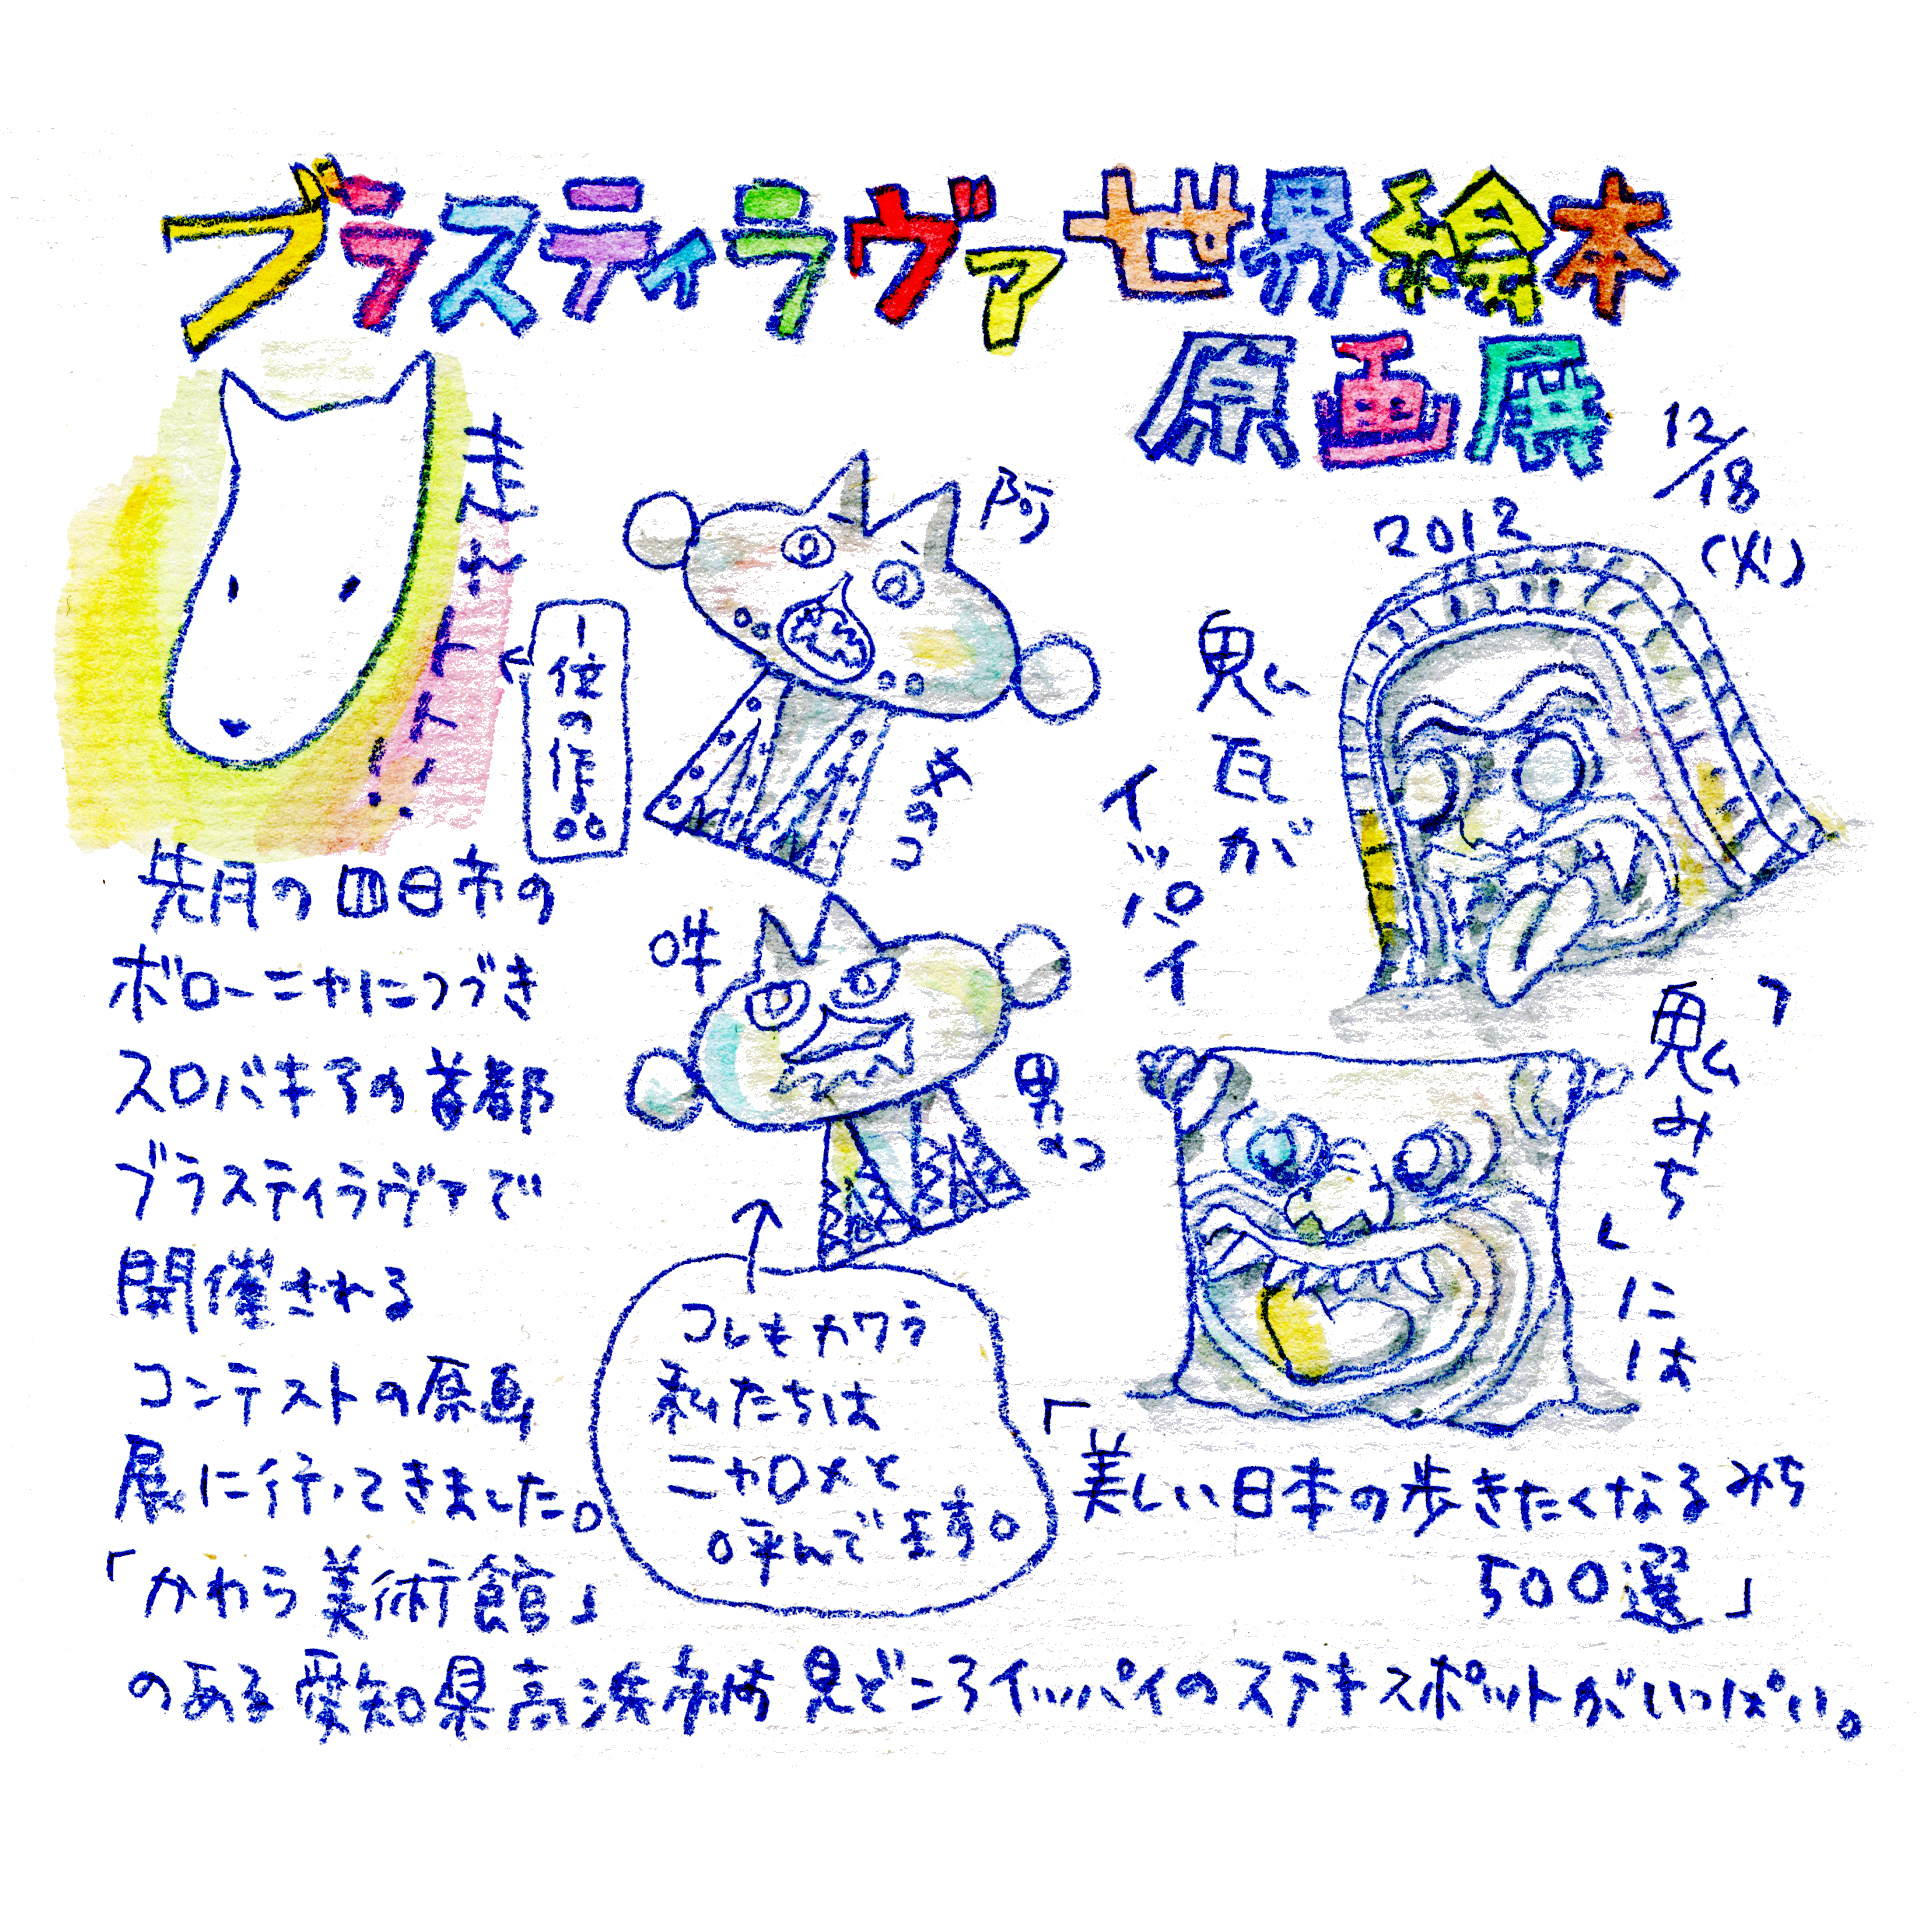 ブラスティラヴァ世界絵本
原画展
12/18
(火)
2012
走れトトト!!
1位の作品
阿
女のコ
吽
男のコ
鬼瓦が
イッパイ
「鬼みち」には
先月の四日市の
ボローニャにつづき
スロバキアの首都
ブラスティラヴァで
開催される
コンテストの原画
展に行ってきました。
「かわら美術館」
のある愛知県高浜市は見どころイッパイのステキスポットがいっぱい。
コレもカワラ
私たちは
ニャロメと
呼んでます。
「美しい日本の歩きたくなるみち
500選」